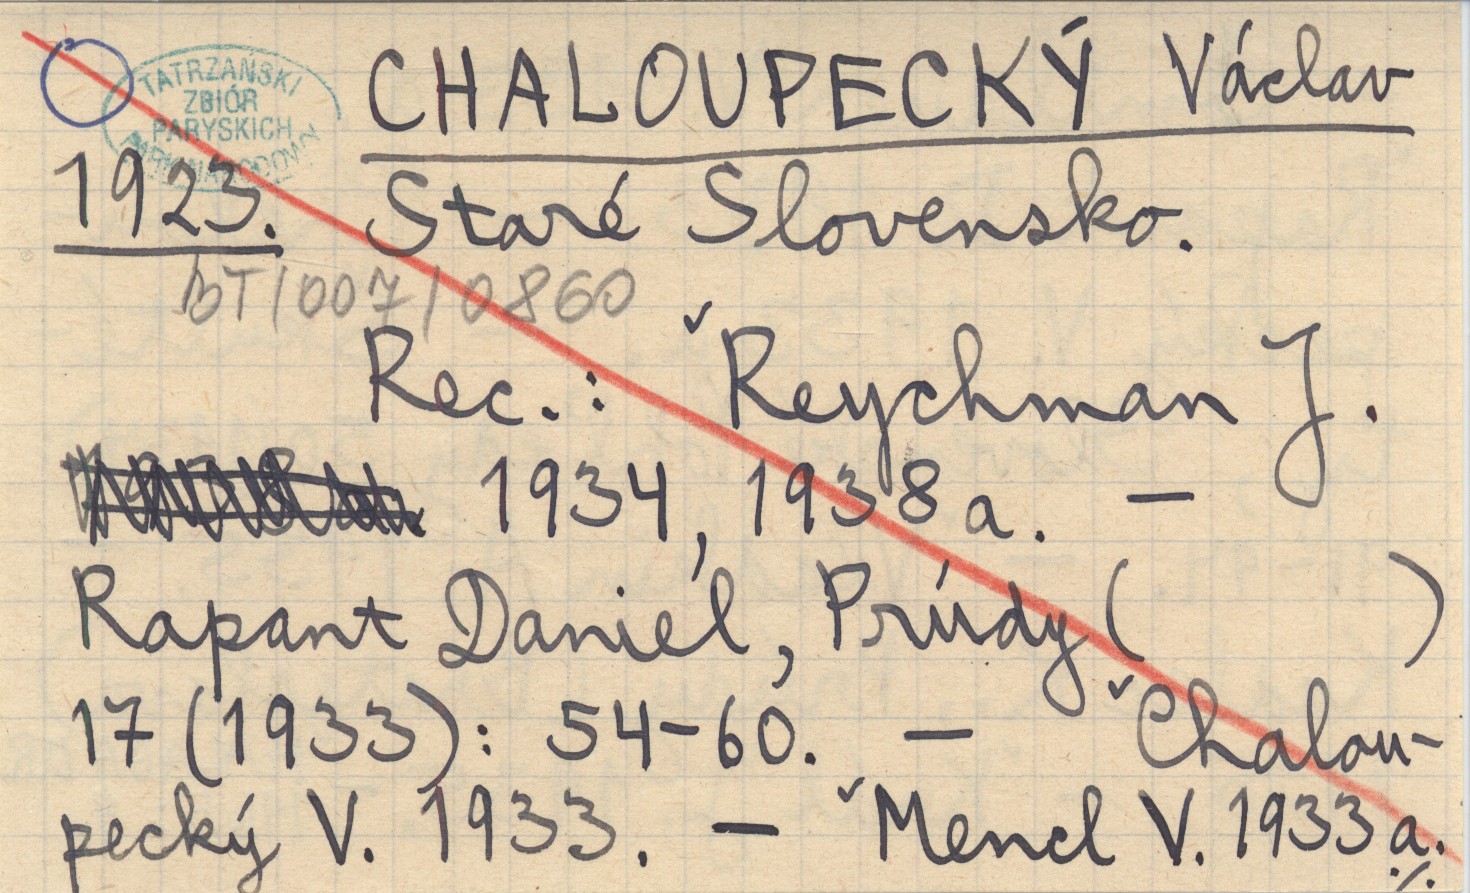 TATRZAŃSKI
ZBIÓR
PARYSKICH
CHALOUPECKÝ Václav
1923. Staré Slovensko.
BT/007/0860
Rec.: ˇReychman J.
1934, 1938a. —
Rapant Daniél, Prúdy ( )
17 (1933): 54-60. — ˇChalou-
pecký V. 1933. — ˇMencl V. 1933a.
./.